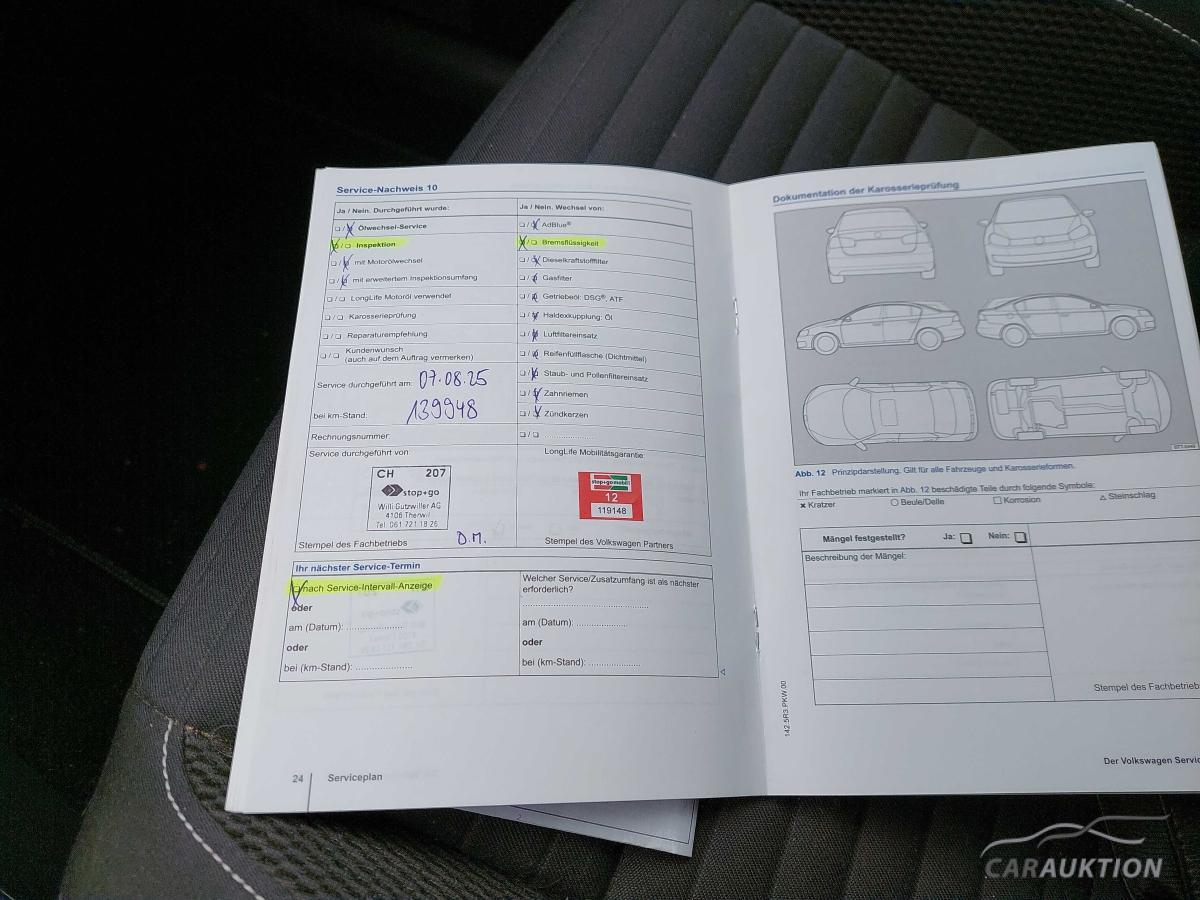 Service-Nachweis 10
Ja / Nein. Durchgeführt wurde:
Ölwechsel-Service
Inspektion
mit Motorölwechsel
mit erweitertem Inspektionsumfang
LongLife Motoröl verwendet
Karosserieprüfung
Reparaturempfehlung
Kundenwunsch
(auch auf dem Auftrag vermerken)
Service durchgeführt am: 07.08.25
bei km-Stand: 139948
Rechnungsnummer:
Ja / Nein. Wechsel von:
AdBlue®
Bremsflüssigkeit
Dieselkraftstofffilter
Gasfilter
Getriebeöl: DSG®, ATF
Haldexkupplung: Öl
Luftfiltereinsatz
Reifenfüllflasche (Dichtmittel)
Staub- und Pollenfiltereinsatz
Zahnriemen
Zündkerzen
Service durchgeführt von:
CH 207
stop+go
Willi Gutzwiller AG
4106 Therwil
Tel. 061 721 18 26
Stempel des Fachbetriebs
D.M.
LongLife Mobilitätsgarantie:
stop+go mobil
12
119148
Stempel des Volkswagen Partners
Ihr nächster Service-Termin
nach Service-Intervall-Anzeige
oder
am (Datum): ....................
oder
bei (km-Stand): ....................
Welcher Service/Zusatzumfang ist als nächster
erforderlich?
am (Datum): ..................
oder
bei (km-Stand): ..................
24 Serviceplan
Dokumentation der Karosserieprüfung
Abb. 12 Prinzipdarstellung. Gilt für alle Fahrzeuge und Karosserieformen.
Ihr Fachbetrieb markiert in Abb. 12 beschädigte Teile durch folgende Symbole:
Kratzer Beule/Delle Korrosion Steinschlag
Mängel festgestellt? Ja: Nein:
Beschreibung der Mängel:
Stempel des Fachbetrieb
142.5R3.PKW.00
Der Volkswagen Servic
CARAUKTION